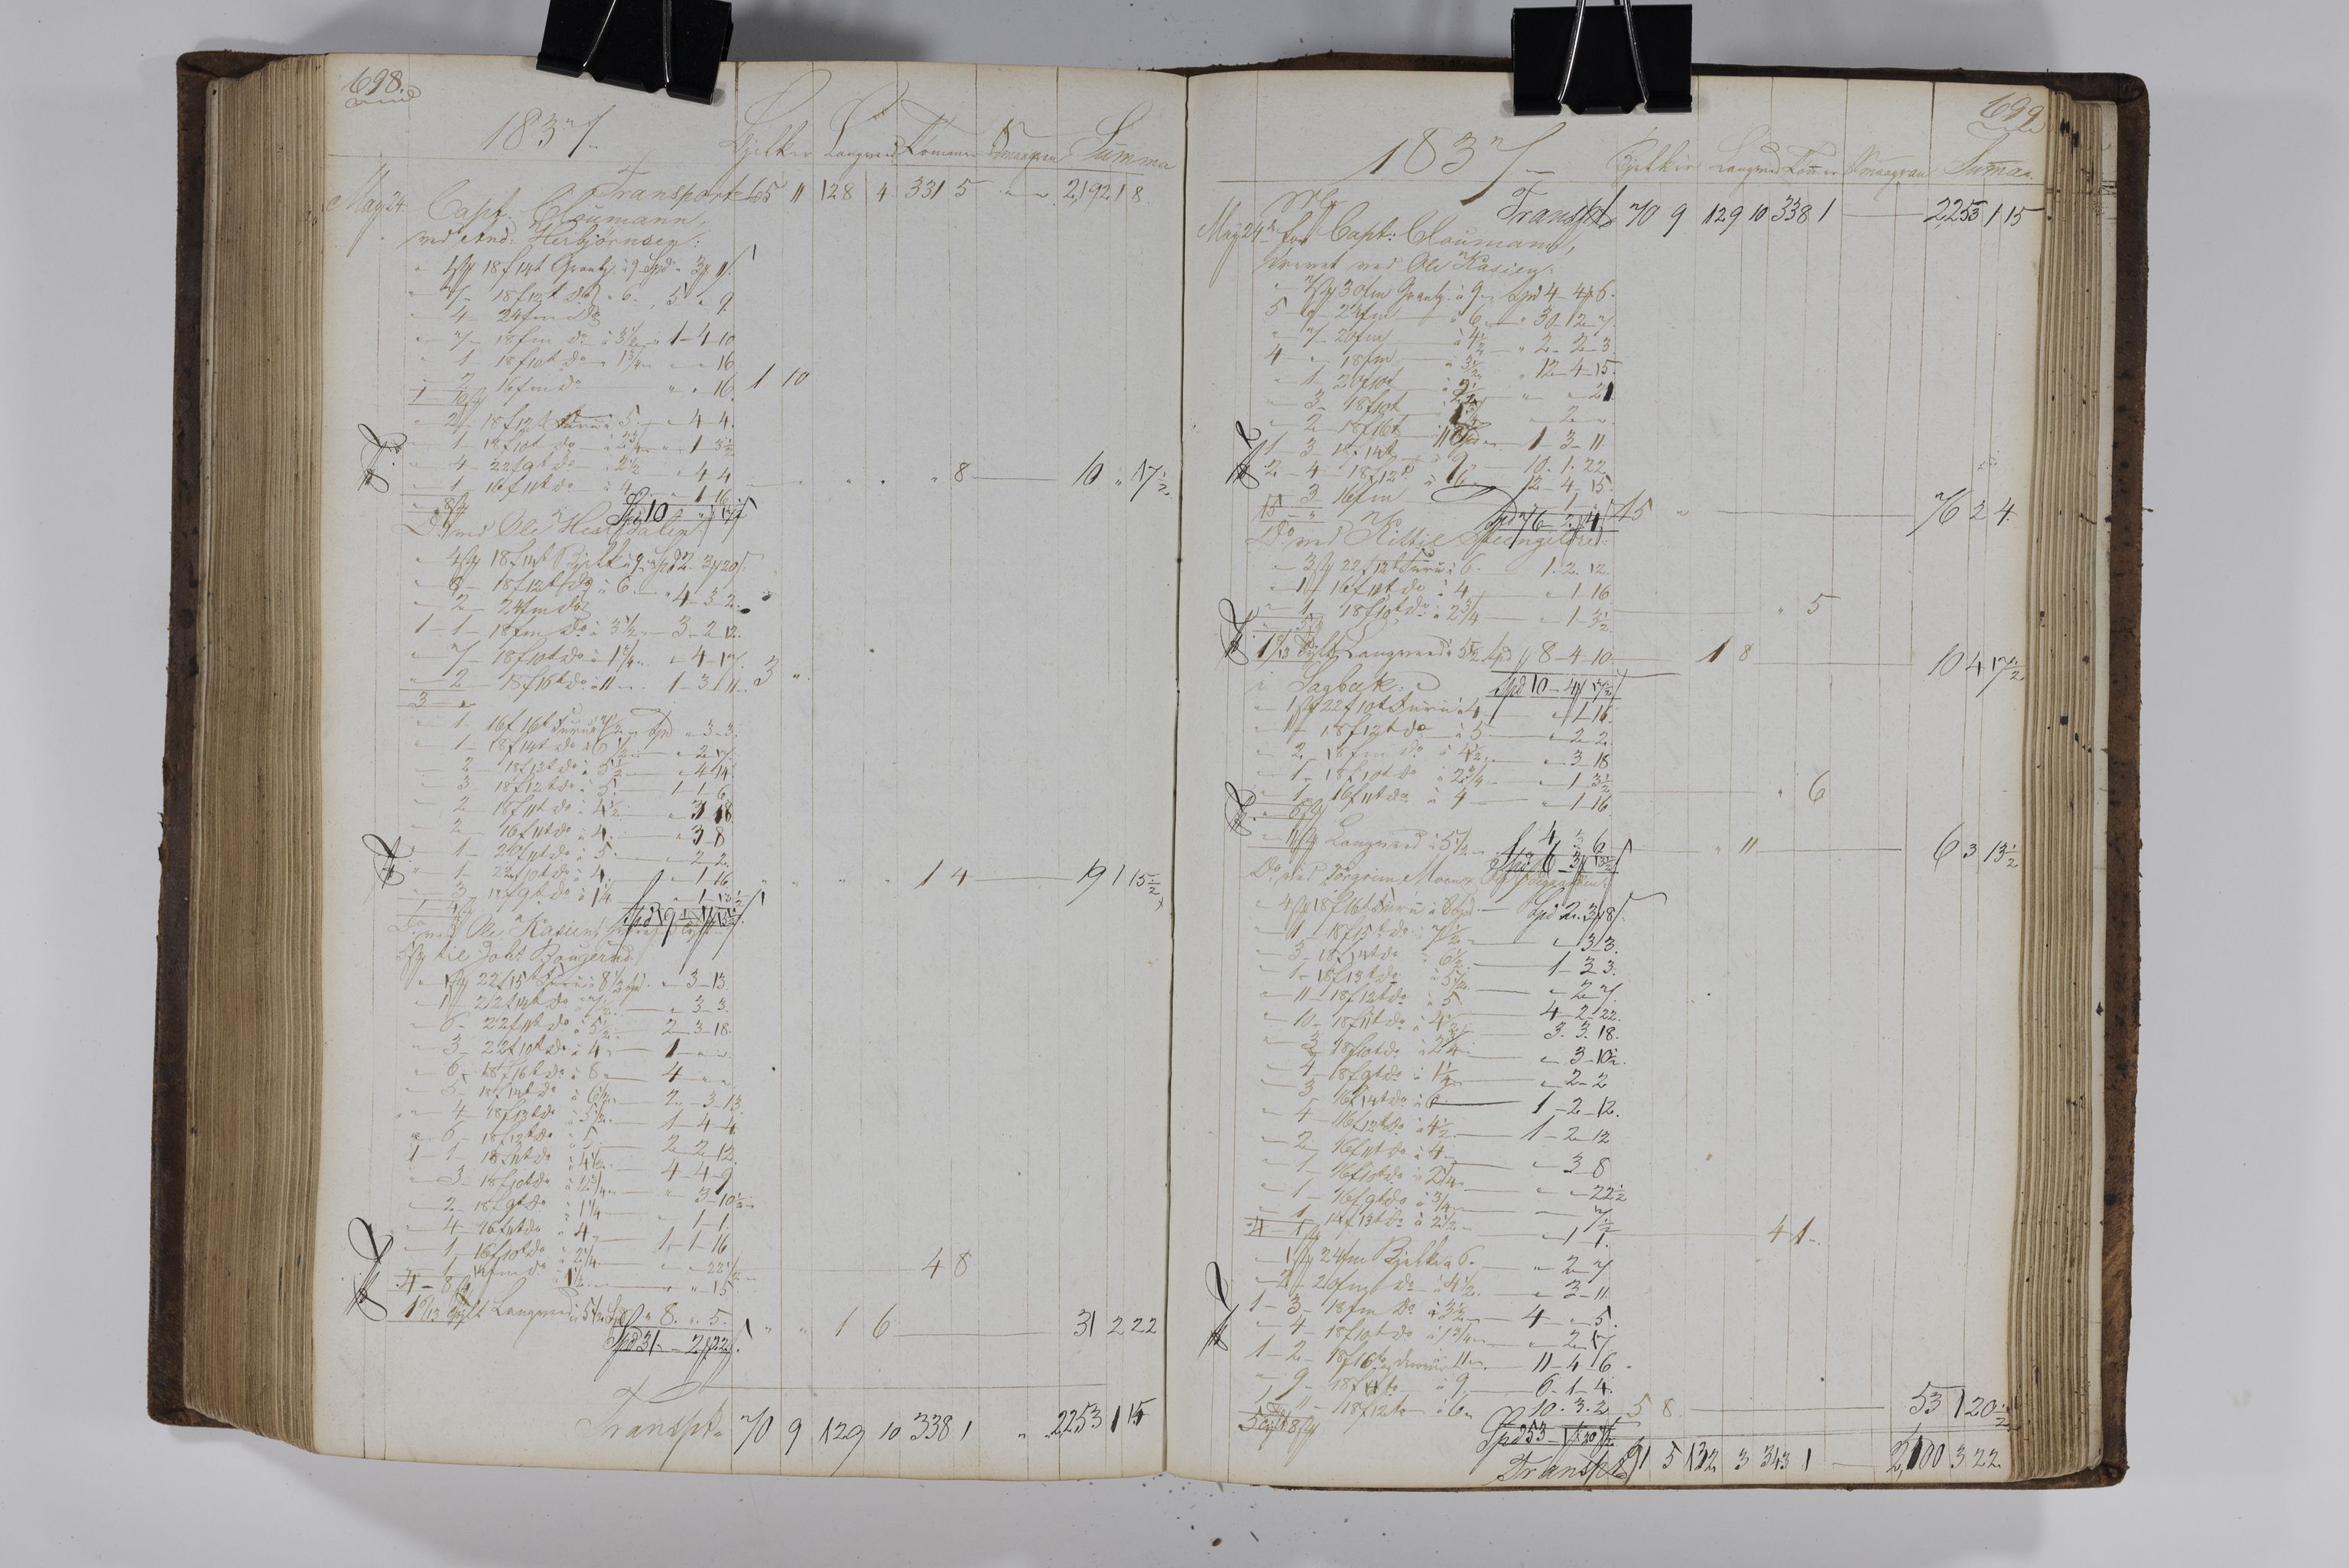 698.
1837.
Bjelker Langved Tømmer Smaagran Summa
Transport 65 11 128 4 331 5 " " 2,192 1 8
May 24 Capt. Cloumann,
ved And: Herbjørnsen:
" 4 18f 14t Granbj. à 9 Spd " 3 11
" 7 - 18f 12t do " 6 " 5 " 9
" 4 - 24fm do
" 7 - 18fm do à 3 1/2 " 1-4-10
" 1 18f 10t do 1 3/4 " " 16
" 2 16fm do " " 16 1 10
1 10
" 2 18f 12t Furu à 5 " 4-4
" 1 18f 10t do à 2 3/4 " 1-3 1/2
" 4 22f 9t do à 2 1/2 " 4-4
" 1 16f 11t do à 4 " 1-16
" 8 Spd 10 " 17 1/2 " 8 10 " 17 1/2
Do ved Ole Hestdalen
" 4 18f 14t Bjelk à 9 Spd 2-3-20
" 8 - 18f 12t do à 6 " 4-3-2
" 2 - 24fm do
1-1-18fm do à 3 1/2 3-2-12
" 7 - 18f 10t do à 1 3/4 " 4-17
" 2 18f 16t do à 11 1-3-11 3 "
3 "
" 1 16f 16t Furu à 7 1/2 Spd " 3-3
" 1 - 18f 14t do à 6 1/2 " 2-17
" 2 18f 13t do à 5 1/2 " 4-14
" 3 18f 12t do à 5 1-1-6
" 2 18f 11t do à 4 1/2 " 3 18
" 2 16f 11t do à 4 " 3-8
" 1 20f 11t do à 5 " 2-2
" 1 22f 10t do à 4 " 1-16
" 3 18f 9t do à 1 1/4 " 1-13 1/2
1 4 Spd 19 1 15 1/2 1 4 19 1 15 1/2
Do ved Ole Kasien,
til Joh: Baugerud
" 1 22f 15t Furu à 8 1/2 Spd " 3-13
" 1 22f 14t do à 7 1/2 " 3-3
" 6 - 22f 11t do à 5 1/2 2-3-18
" 3 - 22f 10t do à 4 1 " "
" 6 - 18f 16t do à 8 4 " "
" 5 - 18f 14t do à 6 1/2 2-3-13
" 4 18f 13t do à 5 1/2 1-4-4
" 6 - 18f 12t do à 5 2-2-12
1-1-18f 11t do à 4 1/2 4-4-9
" 3 - 18f 10t do à 2 3/4 " 3-10 1/2
" 2 - 18f 9t do à 1 1/4 " 1-1
" 4 - 16f 11t do à 4 1-1-16
" 1 - 16f 10t do à 2 1/4 " " 22 1/2
" 1 14fm do à 1 1/2 " " 15
4-8 4 8
1 6/12 Tylt Langved à 5 1/2 Spd " 8 " 5
Spd 31 - 2 22 " " 1 6 31 2 22
Transpt. 70 9 129 10 338 1 " " 2253 1 15
699
1837
Bjelker Langved Tømer Smaagran Suma
Transpt 70 9 129 10 338 1 2,253 1 15
May 24 for Capt: Cloumann,
ved Ole Kasien:
" 7 30fm Granbj. à 9 Spd 4-4-6
5 9 - 24fm à 6 " 30-12-7
" 7 - 20fm à 4 1/2 " 2-2-3
4 " 18fm à 3 1/2 " 12-4-15
" 1 - 20f 10t à 2 1/2 " " 21
" 3 18f 10t " 2 "
" 2 18f 16t 11 Spd 1-3-11
1 3 - 18f 14t à 9 10-1-22
2-4 18f 12t à 6 12-4-15
" 3 - 16fm
15 " Spd 76-2-4 15 " 76 2 4
Do ved Kittil
" 3 22f 12t Furu à 6 1-2-12
" 1 16f 11t do à 4 " 1-16
" 1 18f 10t do à 2 3/4 " 1-3 1/2
" 5 " 5
1 8/12 Tylt Langved à 5 1/2 Spd 8-4-10 1 8
Spd 10-4 17 1/2 10 4 17 1/2
i Sagbæk:
" 1 22f 10t Furu à 4 " 1-16
" 1 - 18f 12t do à 5 " 2-2
" 2 18fm do à 4 1/2 " 3-18
" 1 - 18f 10t do à 2 3/4 " 1-3 1/2
" 1 - 16f 11t do à 4 " 1-16
" 6 " 6
" 11 Langved à 5 1/2 4-3-6
Spd 6-3 13 1/2 " 11 6 3 13 1/2
Do ved Torgrim Moen
" 4 18f 16t Furu à 8 Spd Spd 2-3-8
" 1 - 18f 15t do à 7 1/2 " 3-3
" 3 - 18f 14t do à 6 1/2 1-3-3
" 1 - 18f 13t do à 5 1/2 " 2-7
" 11 - 18f 12t do à 5 4-2-22
" 10 - 18f 11t do à 4 1/2 3-3-18
" 3 18f 10t do à 2 3/4 " 3-10 1/2
" 4 - 18f 9t do à 1 1/4 " 2-2
" 3 16f 14t do à 6 1-2-12
" 4 16f 12t do à 4 1/2 1-2-12
" 2 16f 11t do à 4 " 3-8
" 1 16f 10t do à 2 1/4 " " 22 1/2
" 1 - 16f 9t do à 3/4 " " 7 1/2
" 1 14f 13t do à 2 1/2 " 1-1
4-1 4 1
" 1 24fm Bjelk à 6 " 2-7
" 2 - 20fm do à 4 1/2 " 3-11
1-3-18fm do à 3 1/2 4 " 5
" 4 - 18f 10t do à 1 3/4 " 2-17
1-2-18f 16t 11 11-4-6
" 9 - 18f 14t à 9 6-1-4
1 11 - 18f 12t à 6 10-3-2
5 Tylt 8 Spd 53-1-20 1/2 5 8 53 1 20 1/2
Transpt 91 5 132 3 343 1 2,400 3 22